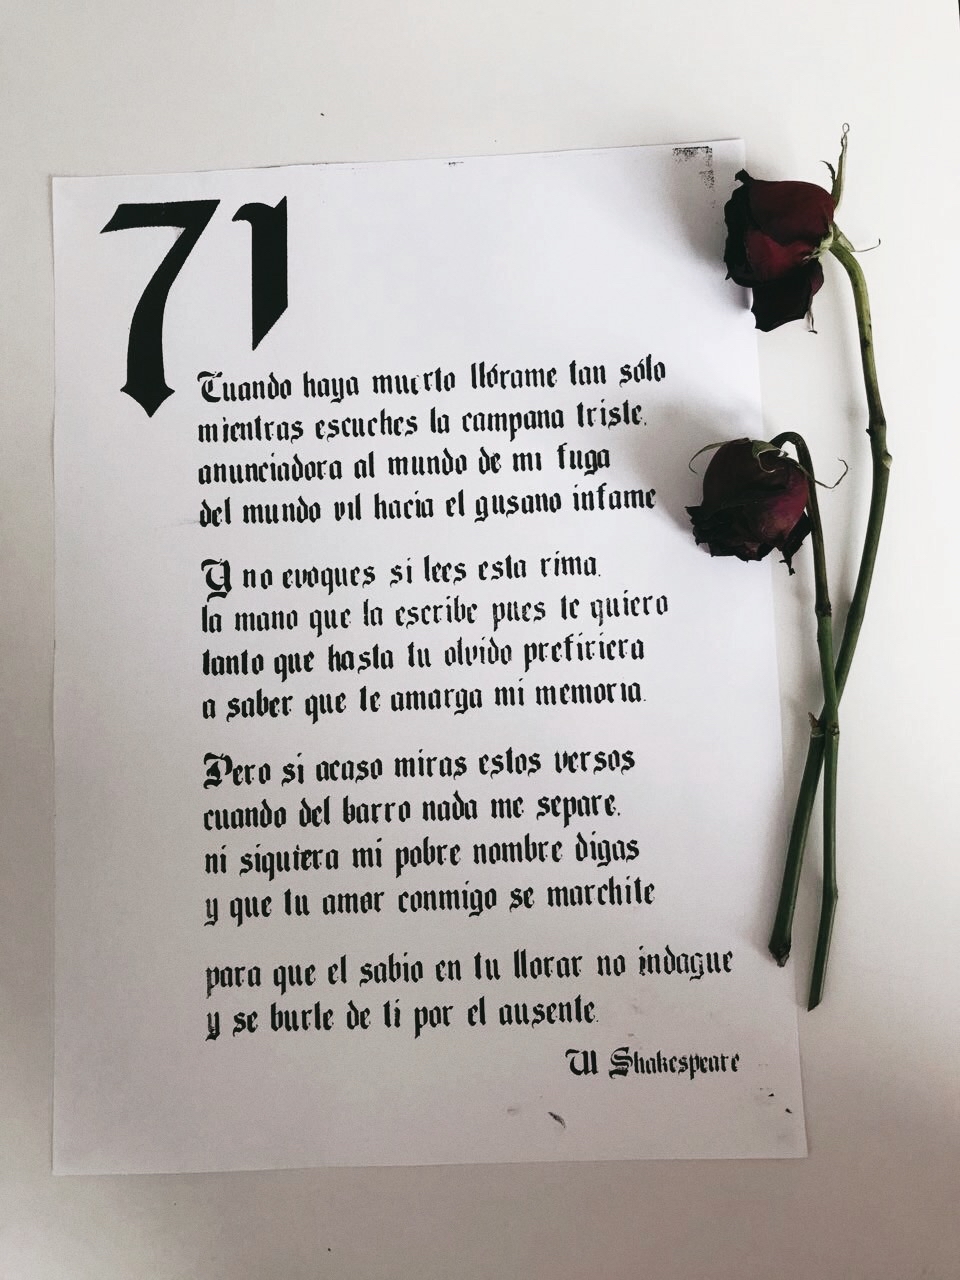 71
Cuando haya muerto llórame tan sólo
mientras escuches la campana triste,
anunciadora al mundo de mi fuga
del mundo vil hacia el gusano infame
Y no evoques si lees esta rima,
la mano que la escribe pues te quiero
tanto que hasta tu olvido prefiriera
a saber que te amarga mi memoria.
Pero si acaso miras estos versos
cuando del barro nada me separe,
ni siquiera mi pobre nombre digas
y que tu amor conmigo se marchite
para que el sabio en tu llorar no indague
y se burle de ti por el ausente.
W Shakespeare